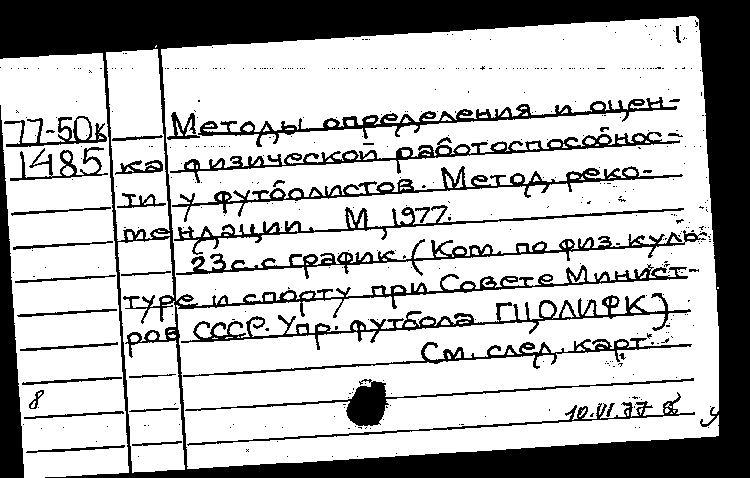 1
77-50к Методы определения и оцен-
1485 ка физической работоспособнос-
ти у футболистов. Метод. реко-
мендации. М, 1977.
23с. с график. (Ком. по физ. куль-
туре и спорту при Совете Минист-
ров СССР. Упр. футбола ГЦОЛИФК)
См. след. карт.
8
10.VI.77